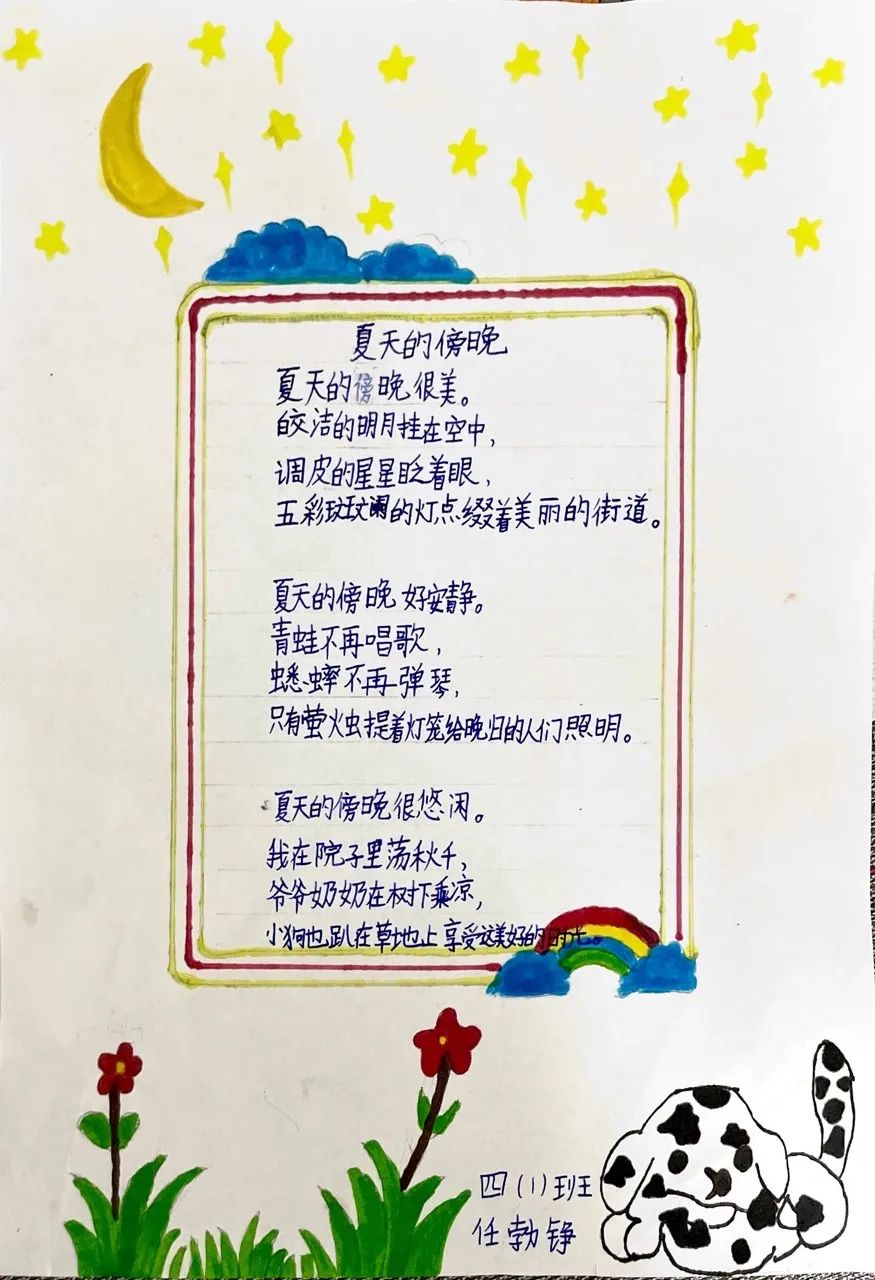 夏天的傍晚
夏天的傍晚很美。
皎洁的明月挂在空中，
调皮的星星眨着眼，
五彩斑斓的灯点缀着美丽的街道。
夏天的傍晚好安静。
青蛙不再唱歌，
蟋蟀不再弹琴，
只有萤火虫提着灯笼给晚归的人们照明。
夏天的傍晚很悠闲。
我在院子里荡秋千，
爷爷奶奶在树下乘凉，
小狗也趴在草地上享受这美好的时光。
四（1）班
任勃铮